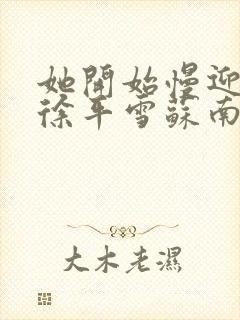 她開始慢迎
徐平雪蘇南
大木老濕